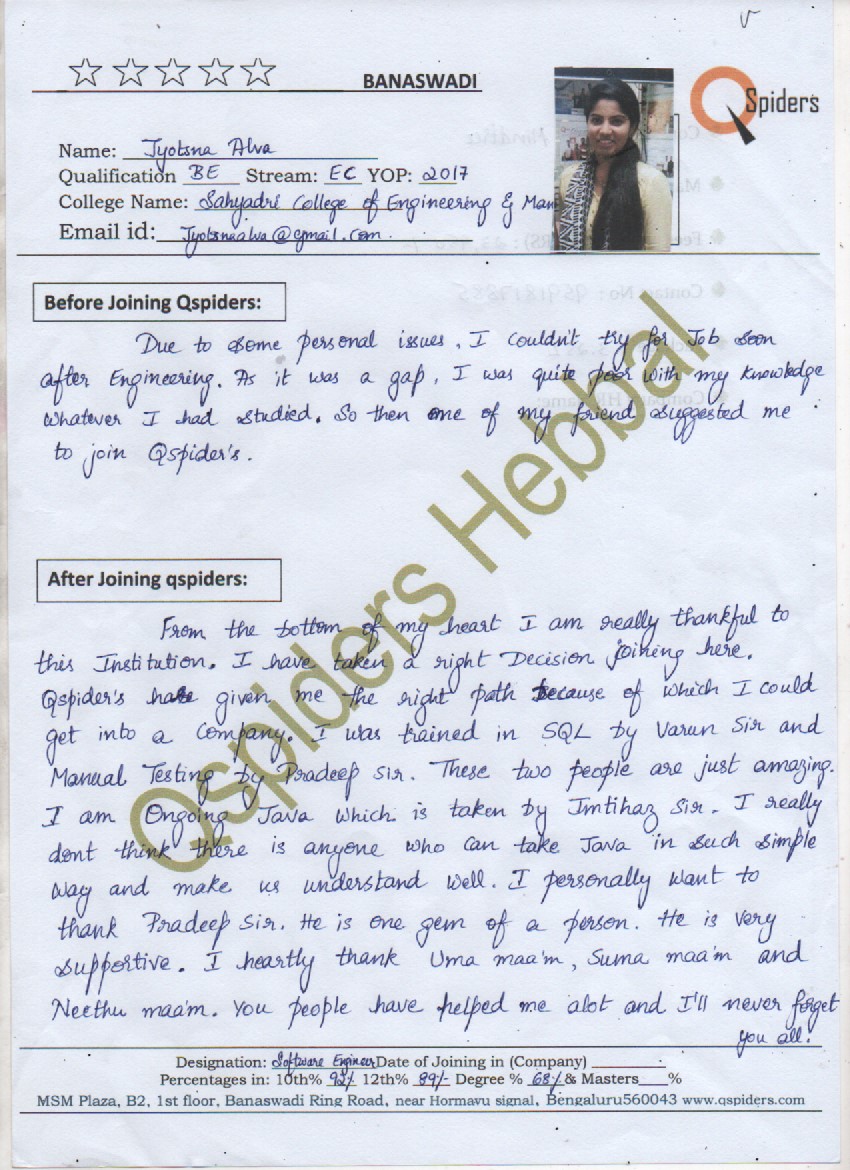 BANASWADI
Q Spiders
Name: Jyotsna Alva
Qualification BE Stream: EC YOP: 2017
College Name: Sahyadri College of Engineering & Man
Email id: Jyotsnaalva@gmail.com
Before Joining Qspiders:
Due to some personal issues, I couldn't try for Job soon
after Engineering. As it was a gap, I was quite poor with my knowledge
whatever I had studied. So then one of my friend suggested me
to join Qspider's.
Qspiders Hebbal
After Joining qspiders:
From the bottom of my heart I am really thankful to
this Institution. I have taken a right Decision joining here.
Qspider's have given me the right path because of which I could
get into a Company. I was trained in SQL by Varun Sir and
Manual Testing by Pradeep sir. These two people are just amazing.
I am Ongoing Java which is taken by Imtihaz Sir. I really
dont think there is anyone who can take Java in such simple
way and make us understand well. I personally want to
thank Pradeep Sir. He is one gem of a person. He is very
supportive. I heartly thank Uma maa'm, Suma maa'm and
Neethu maa'm. You people have helped me alot and I'll never forget
you all!
Designation: Software Engineer Date of Joining in (Company)
Percentages in: 10th% 92% 12th% 89% Degree % 68% & Masters %
MSM Plaza, B2, 1st floor, Banaswadi Ring Road, near Hormavu signal, Bengaluru560043 www.qspiders.com